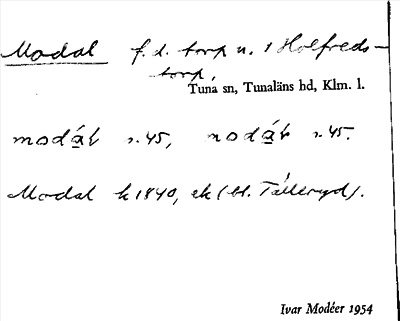 Modal f. d. torp u. 1 Holfreds-
torp,
Tuna sn, Tunaläns hd, Klm. l.
modál s. 45, nodál s. 45.
Modal k 1840, ek (bl. Tälleryd).
Ivar Modéer 1954